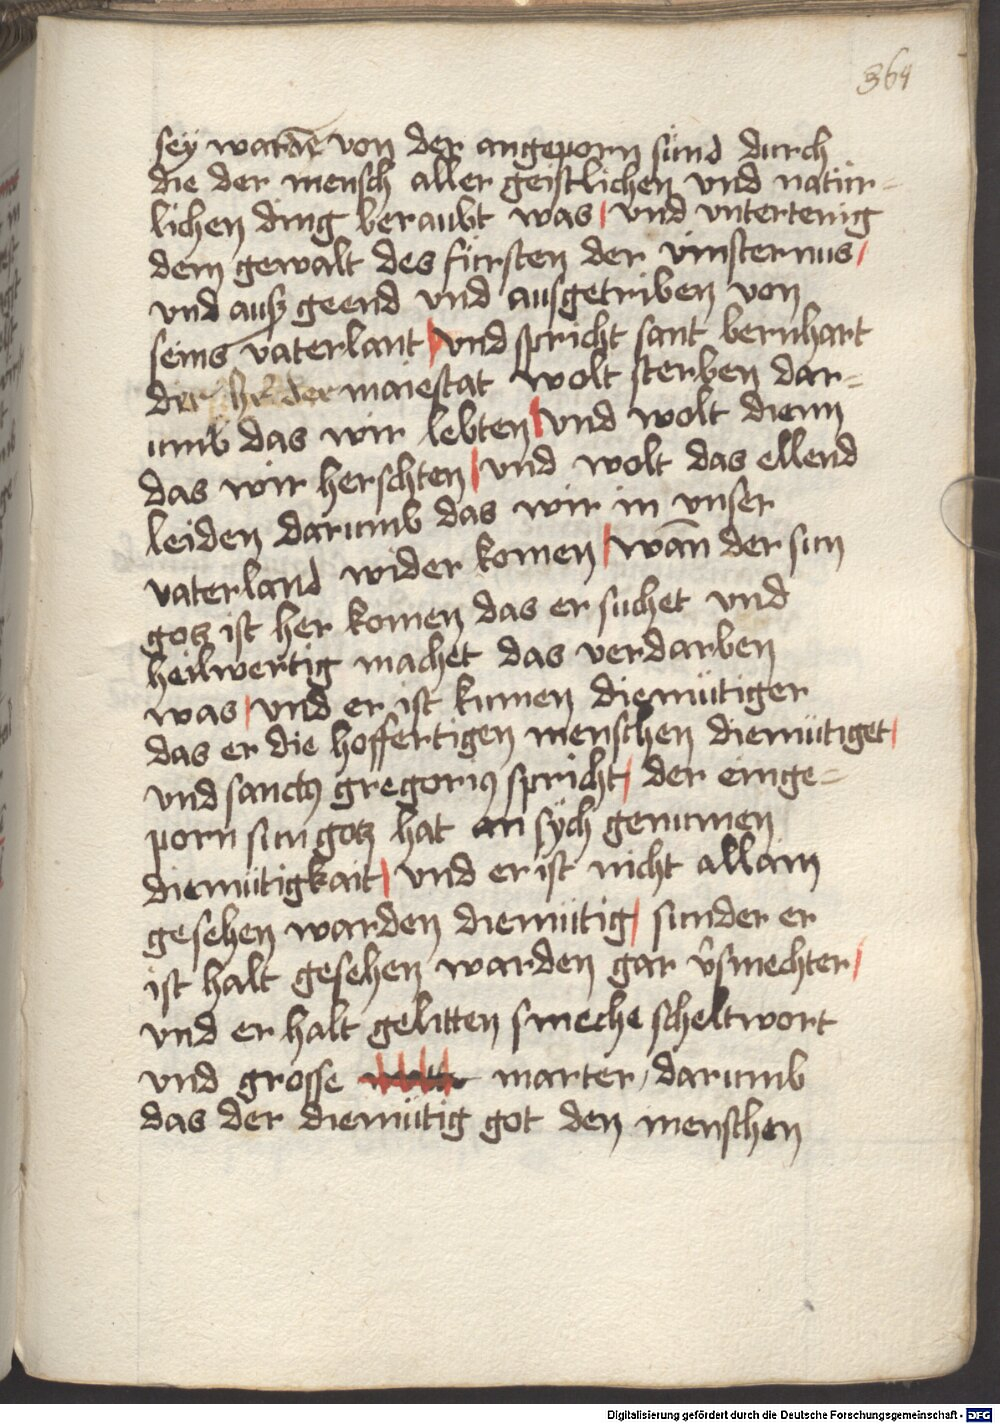 364
sey wardē von der angeporn sünd durch
die der mensch aller geistlichen vnd natür=
lichen ding beraubt was / vnd vntertenig
dem gewalt des fürsten der vinsternus /
vnd auß geend vnd ausgetriben von
seins vaterlant / vnd spricht sant bernhart
der der maiestat wolt sterben dar=
umb das wir lebten / vnd wolt dienn
das wir herschten / vnd wolt das ellend
leiden darumb das wir in vnser
vaterland wider komen / wān der sun
gotz ist her komen das er suchet vnd
heilwertig machet das verdarben
was / vnd er ist kumen diemütiger
das er die hoffertigen menschen diemütiget /
vnd sanctꝰ gregoriꝰ spricht / der einge=
porn sun gotz hat an sych genumen
diemütigkait / vnd er ist nicht allain
gesehen warden diemütig / sunder er
ist halt gesehen warden gar v̄smechter /
vnd er halt gelitten smeche scheltwort
vnd grosse marter / darumb
das der diemütig got den menschen
Digitalisierung gefördert durch die Deutsche Forschungsgemeinschaft - DFG